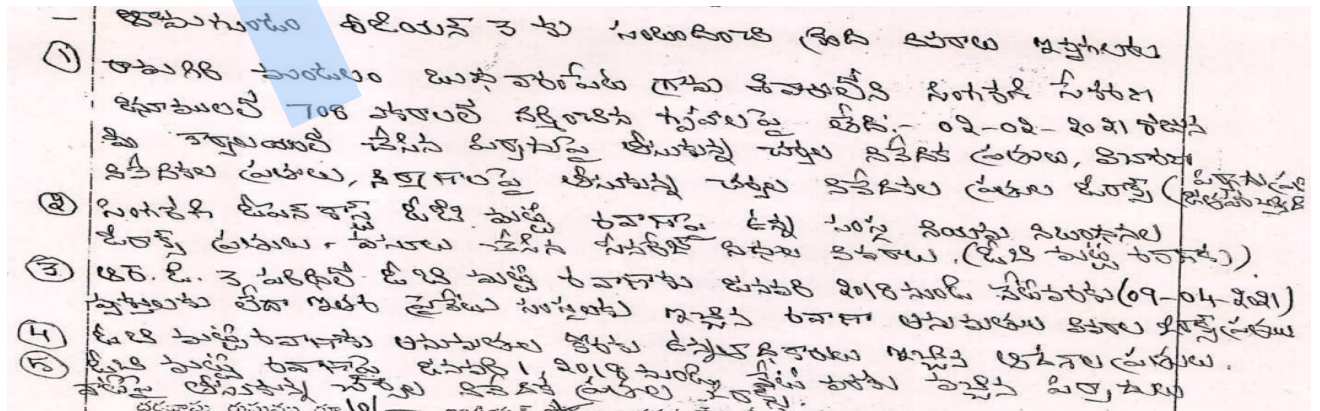 - రామగుండం రీజియన్ 3 కు సంబంధించి క్రింది వివరాలు ఇవ్వగలరు
① రామగిరి మండలం బుధవారంపేట గ్రామ శివారులోని సింగరేణి సేకరణ
భూములలో 708 ఎకరాలలో నిర్మించిన గృహాలపై తేది:- 02-02-2021 రోజున
మీ కార్యాలయంలో చేసిన ఫిర్యాదుపై తీసుకున్న చర్యల నివేదిక ప్రతులు, విచారణ
నివేదికల ప్రతులు, నిర్మాణాలపై తీసుకున్న చర్యల నివేదికల ప్రతుల జిరాక్స్ (ఫిర్యాదు ప్రతి
② సింగరేణి ఓపెన్ కాస్ట్ ఓ.బి మట్టి రవాణాపై ఉన్న సంస్థ నియమ నిబంధనల
జిరాక్స్ ప్రతులు - వసూలు చేసిన వివరాలు. (ఓ.బి మట్టి రవాణాకు)
③ ఆర్.జి. 3 పరిధిలో ఓ బి మట్టి రవాణాకు జనవరి 2018 నుండి నేటివరకు (09-04-2021)
వ్యక్తులకు లేదా ఇతర ప్రైవేటు సంస్థలకు ఇచ్చిన రవాణా అనుమతుల వివరాల జిరాక్స్ ప్రతులు
④ ఓ.బి మట్టి రవాణాకు అనుమతుల కొరకు ఉన్నతాధికారులు ఇచ్చిన ఆదేశాల ప్రతులు.
⑤ ఓ.బి మట్టి రవాణాపై జనవరి 1, 2018 నుండి నేటి వరకు వచ్చిన ఫిర్యాదులు
వాటిపై తీసుకున్న చర్యల నివేదిక ప్రతుల జిరాక్స్.
దరఖాస్తు రుసుము రూ 10/-